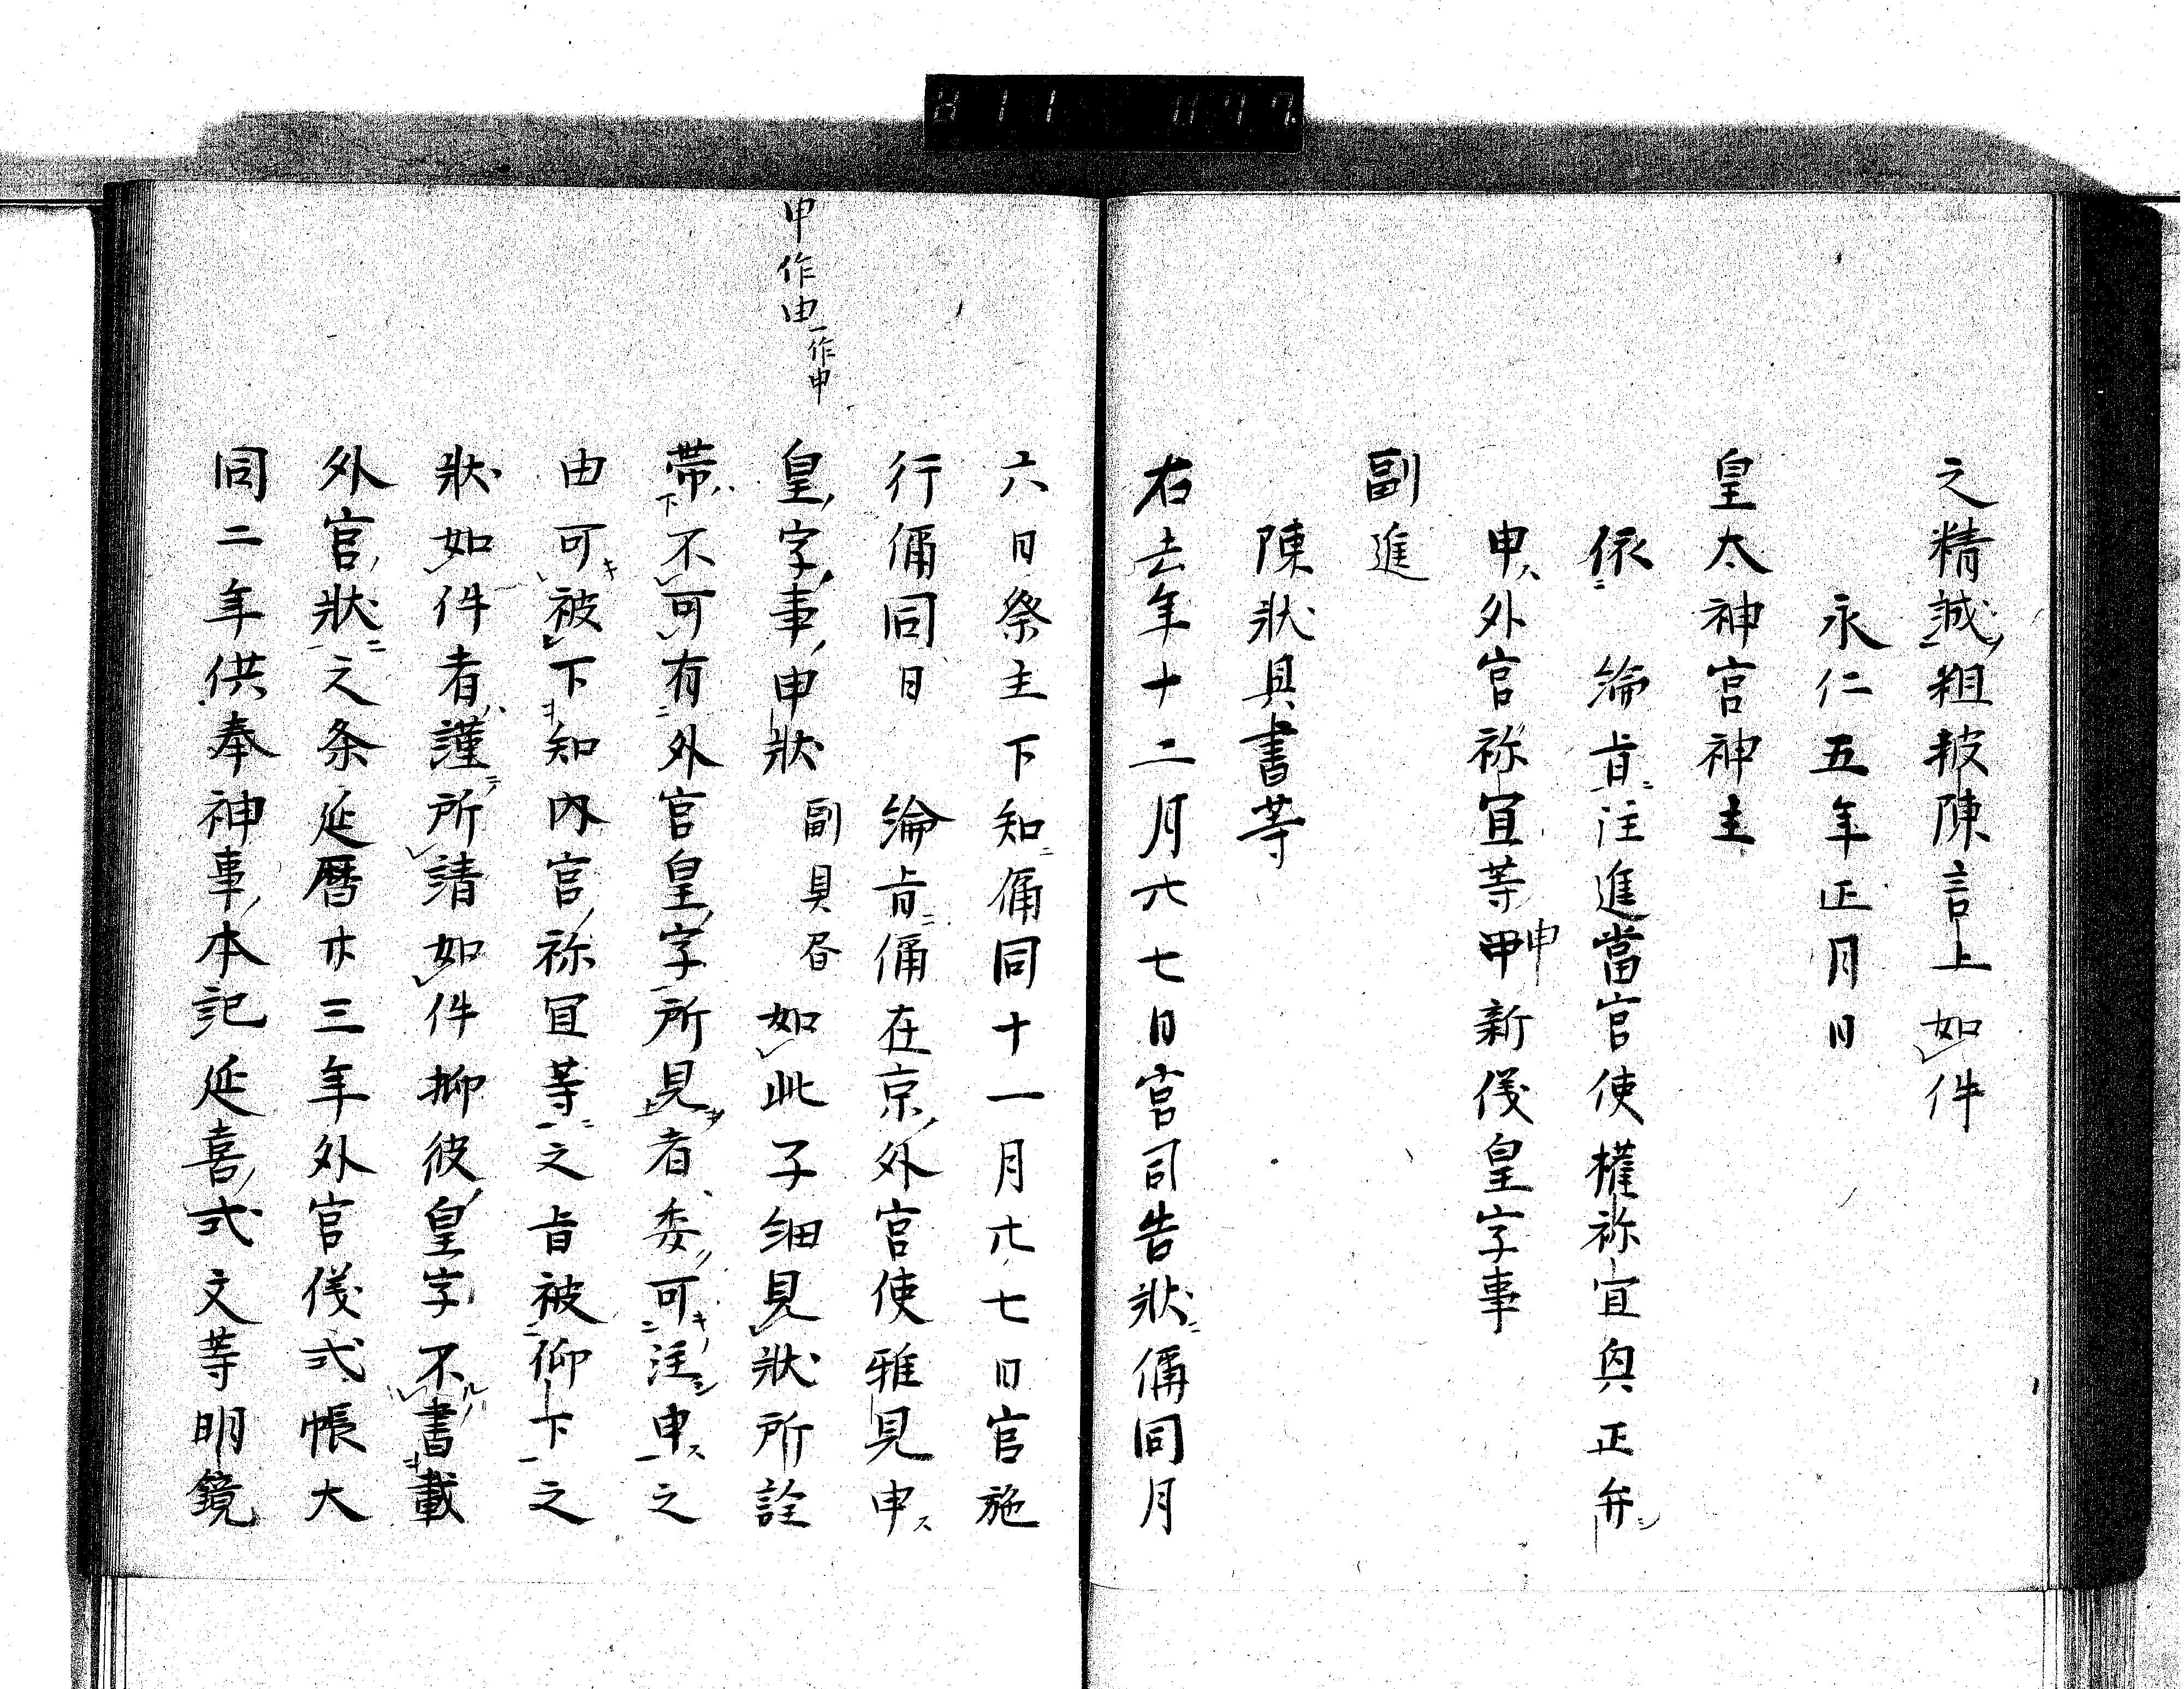 之精誠粗披陳言上如件
永仁五年正月日
皇太神宮神主
依 綸旨注進當宮使權祢宜與正弁
申外宮祢宜等甲新儀皇字事
申
副進
陳狀具書等
右去年十二月六七日宮司告狀偁同月
六日祭主下知偁同十一月廿七日官施
行偁同日 綸旨偁在京外宮使雅見申
皇字事申狀 副具書 如此子細見狀所詮
甲作由一作申
帶不可有外宮皇字所見者委可注申之
由可被下知內宮祢宜等之旨被仰下之
狀如件者謹所請如件抑彼皇字不書載
外宮狀之条延曆廿三年外宮儀式帳大
同二年供奉神事本記延喜式文等明鏡